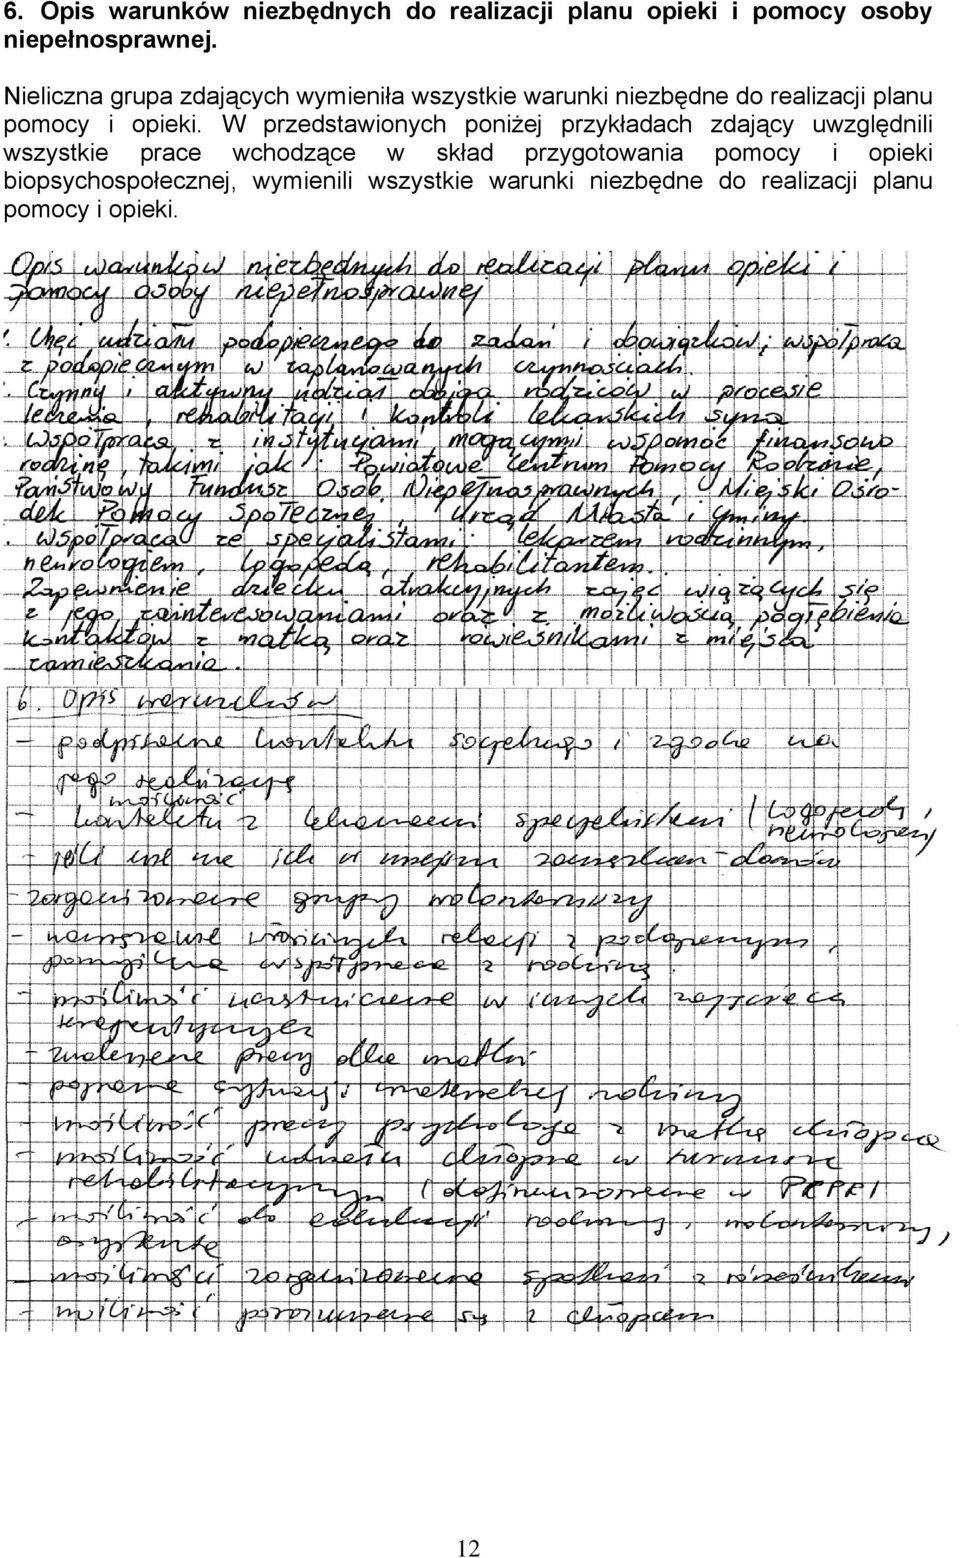 6. Opis warunków niezbędnych do realizacji planu opieki i pomocy osoby
niepełnosprawnej.
Nieliczna grupa zdających wymieniła wszystkie warunki niezbędne do realizacji planu
pomocy i opieki. W przedstawionych poniżej przykładach zdający uwzględnili
wszystkie prace wchodzące w skład przygotowania pomocy i opieki
biopsychospołecznej, wymienili wszystkie warunki niezbędne do realizacji planu
pomocy i opieki.
Opis warunków niezbędnych do realizacji planu opieki i
pomocy osoby niepełnosprawnej
Chęć udziału podopiecznego do zadań i obowiązków; współpraca
z podopiecznym w zaplanowanych czynnościach.
Czynny i aktywny udział obojga rodziców w procesie
leczenia, rehabilitacji i kontroli lekarskich syna
Współpraca z instytucjami mogącymi wspomóc finansowo
rodzinę, takimi jak: Powiatowe Centrum Pomocy Rodzinie,
Państwowy Fundusz Osób Niepełnosprawnych, Miejski Ośro-
dek Pomocy Społecznej, Urząd Miasta i Gminy.
współpraca ze specjalistami: lekarzem rodzinnym,
neurologiem, logopedą, rehabilitantem.
Zapewnienie dziecku atrakcyjnych zajęć wiążących się
z jego zainteresowaniami oraz z możliwością pogłębienia
kontaktów z matką oraz rówieśnikami z miejsca
zamieszkania.
6. Opis warunków
- podpisanie kontraktu socjalnego i zgoda na
jego realizację
możliwość
- kontaktu z lekarzami specjalistami (logopedy,
neurologiem
- jeśli nie ma ich w miejscu zamieszkania - dowóz
- zorganizowanie grupy wolontariuszy
- nawiązanie właściwych relacji z podopiecznym,
pomyślna współpraca z rodziną
- możliwość uczestniczenia w innych zajęciach
terapeutycznych
- znalezienie pracy dla matki
- poprawa sytuacji materialnej rodziny
- możliwość pracy psychologa z matką chłopca
- możliwość udziału chłopca w turnusie
rehabilitacyjnym (dofinansowanie w PCPR)
- możliwość do edukacji rodziny, wolontariuszy,
asystenta
- możliwości zorganizowania spotkań z rówieśnikami
- możliwość porozumienia się z chłopcem
12